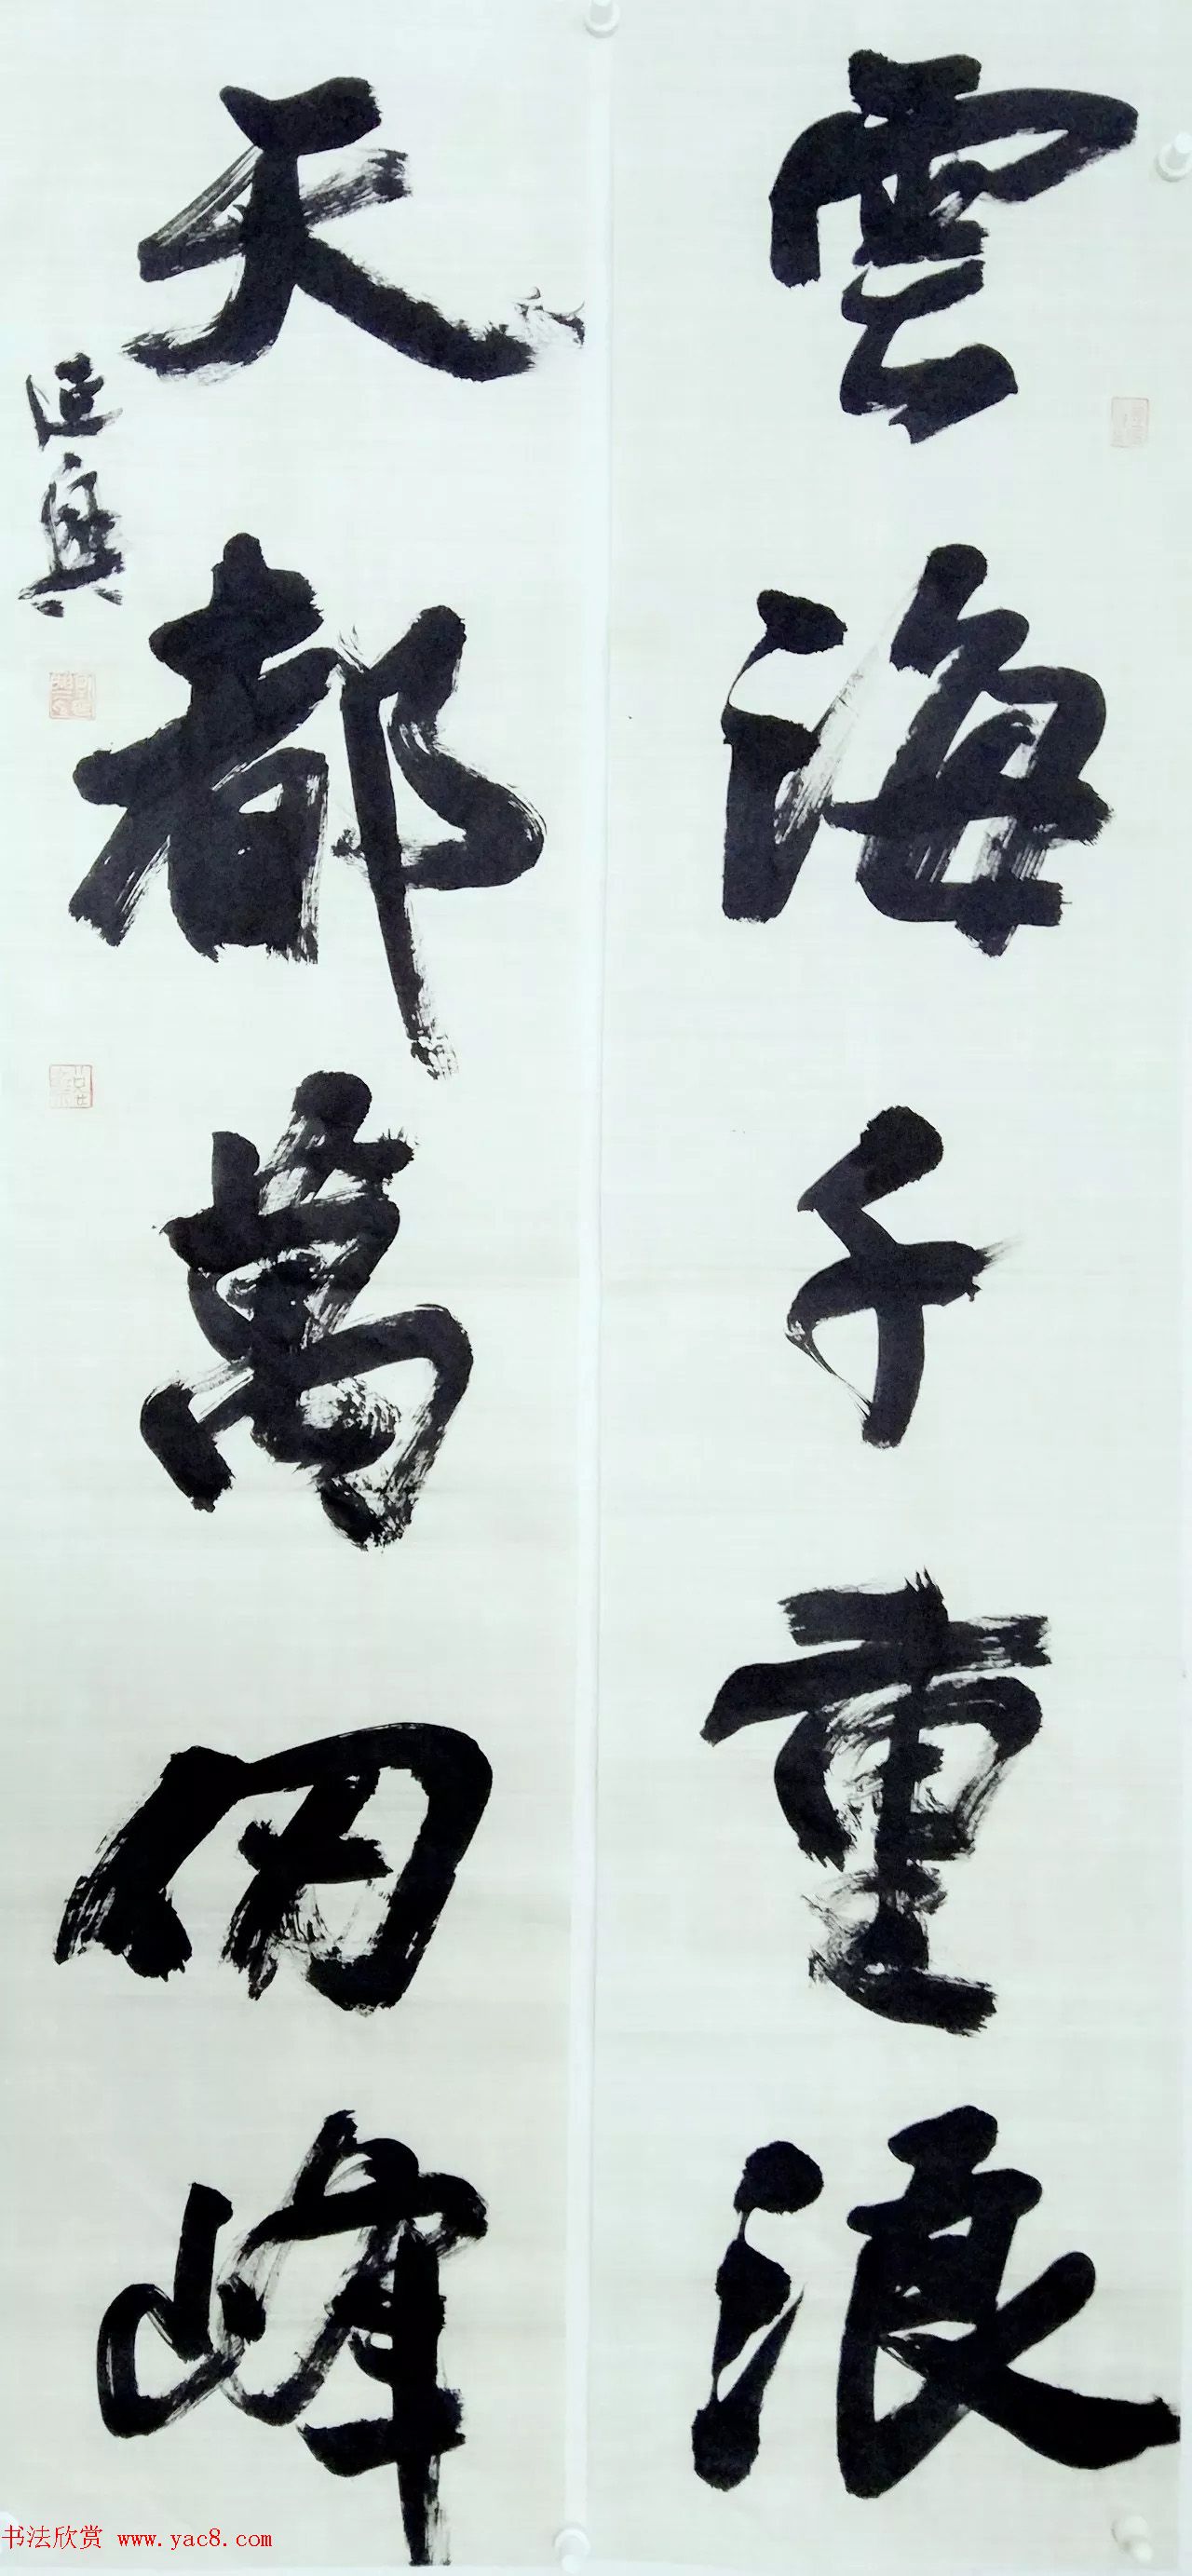 雲海千重浪
天都萬仞峰
书法欣赏 www.yac8.com